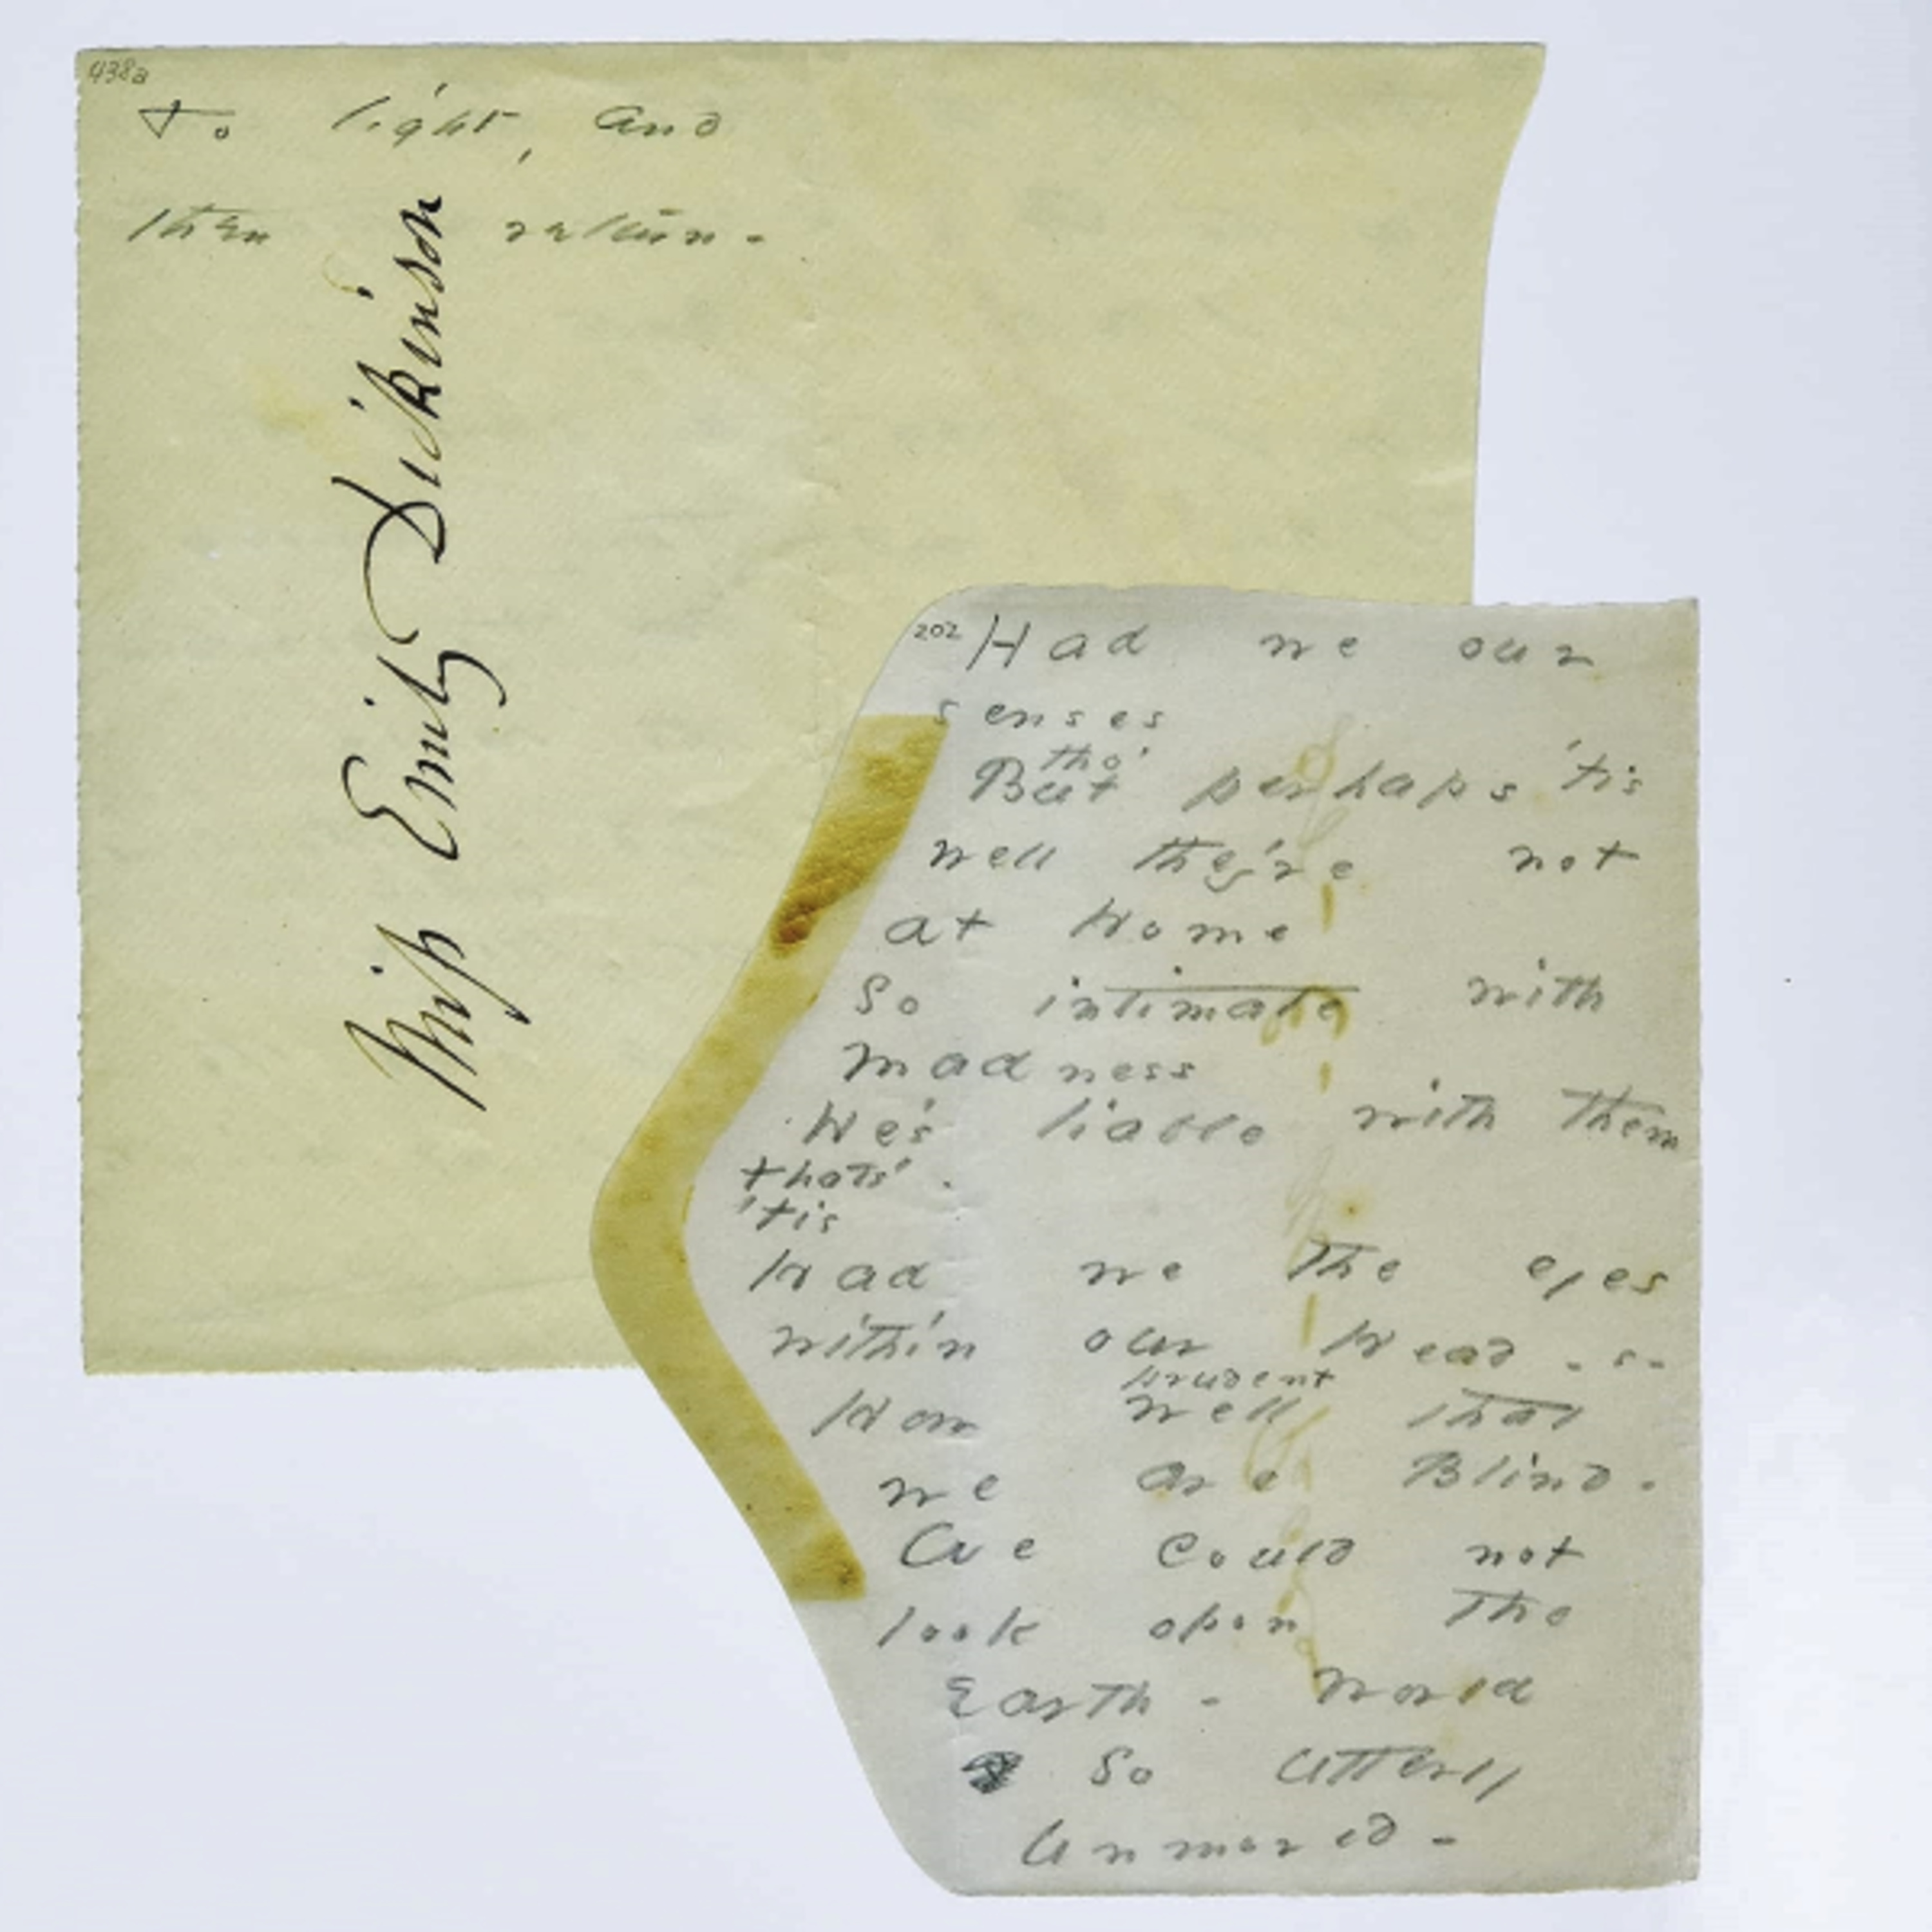 438a
To light, and
then return -
Miss Emily Dickinson
202
Had we our
senses
tho'
But perhaps 'tis
well they're not
at Home
So intimate with
Madness
He's liable with them
that's'
'tis
Had we the eyes
within our Head - s -
prudent
How well that
we are Blind -
We could not
look opon the
Earth - World
So utterly
Unmoved -